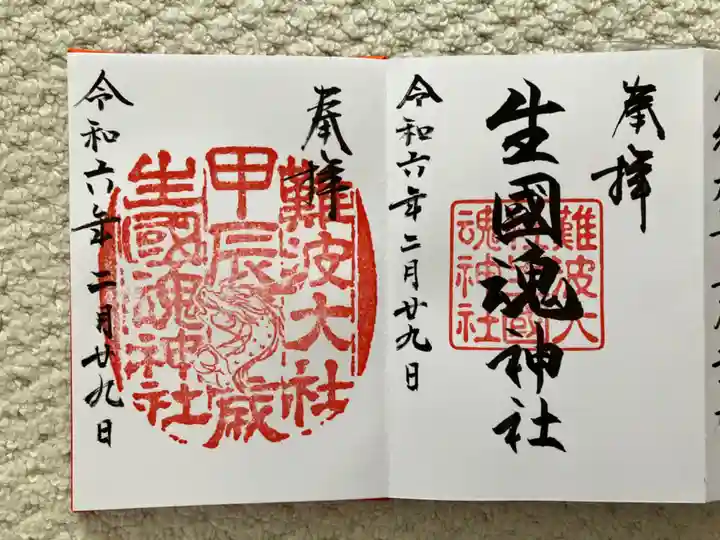 奉拝
生國魂神社
難波大社
生國
魂神社
令和六年二月廿九日
奉拝
難波大社
甲辰歳
生國魂神社
令和六年二月廿九日